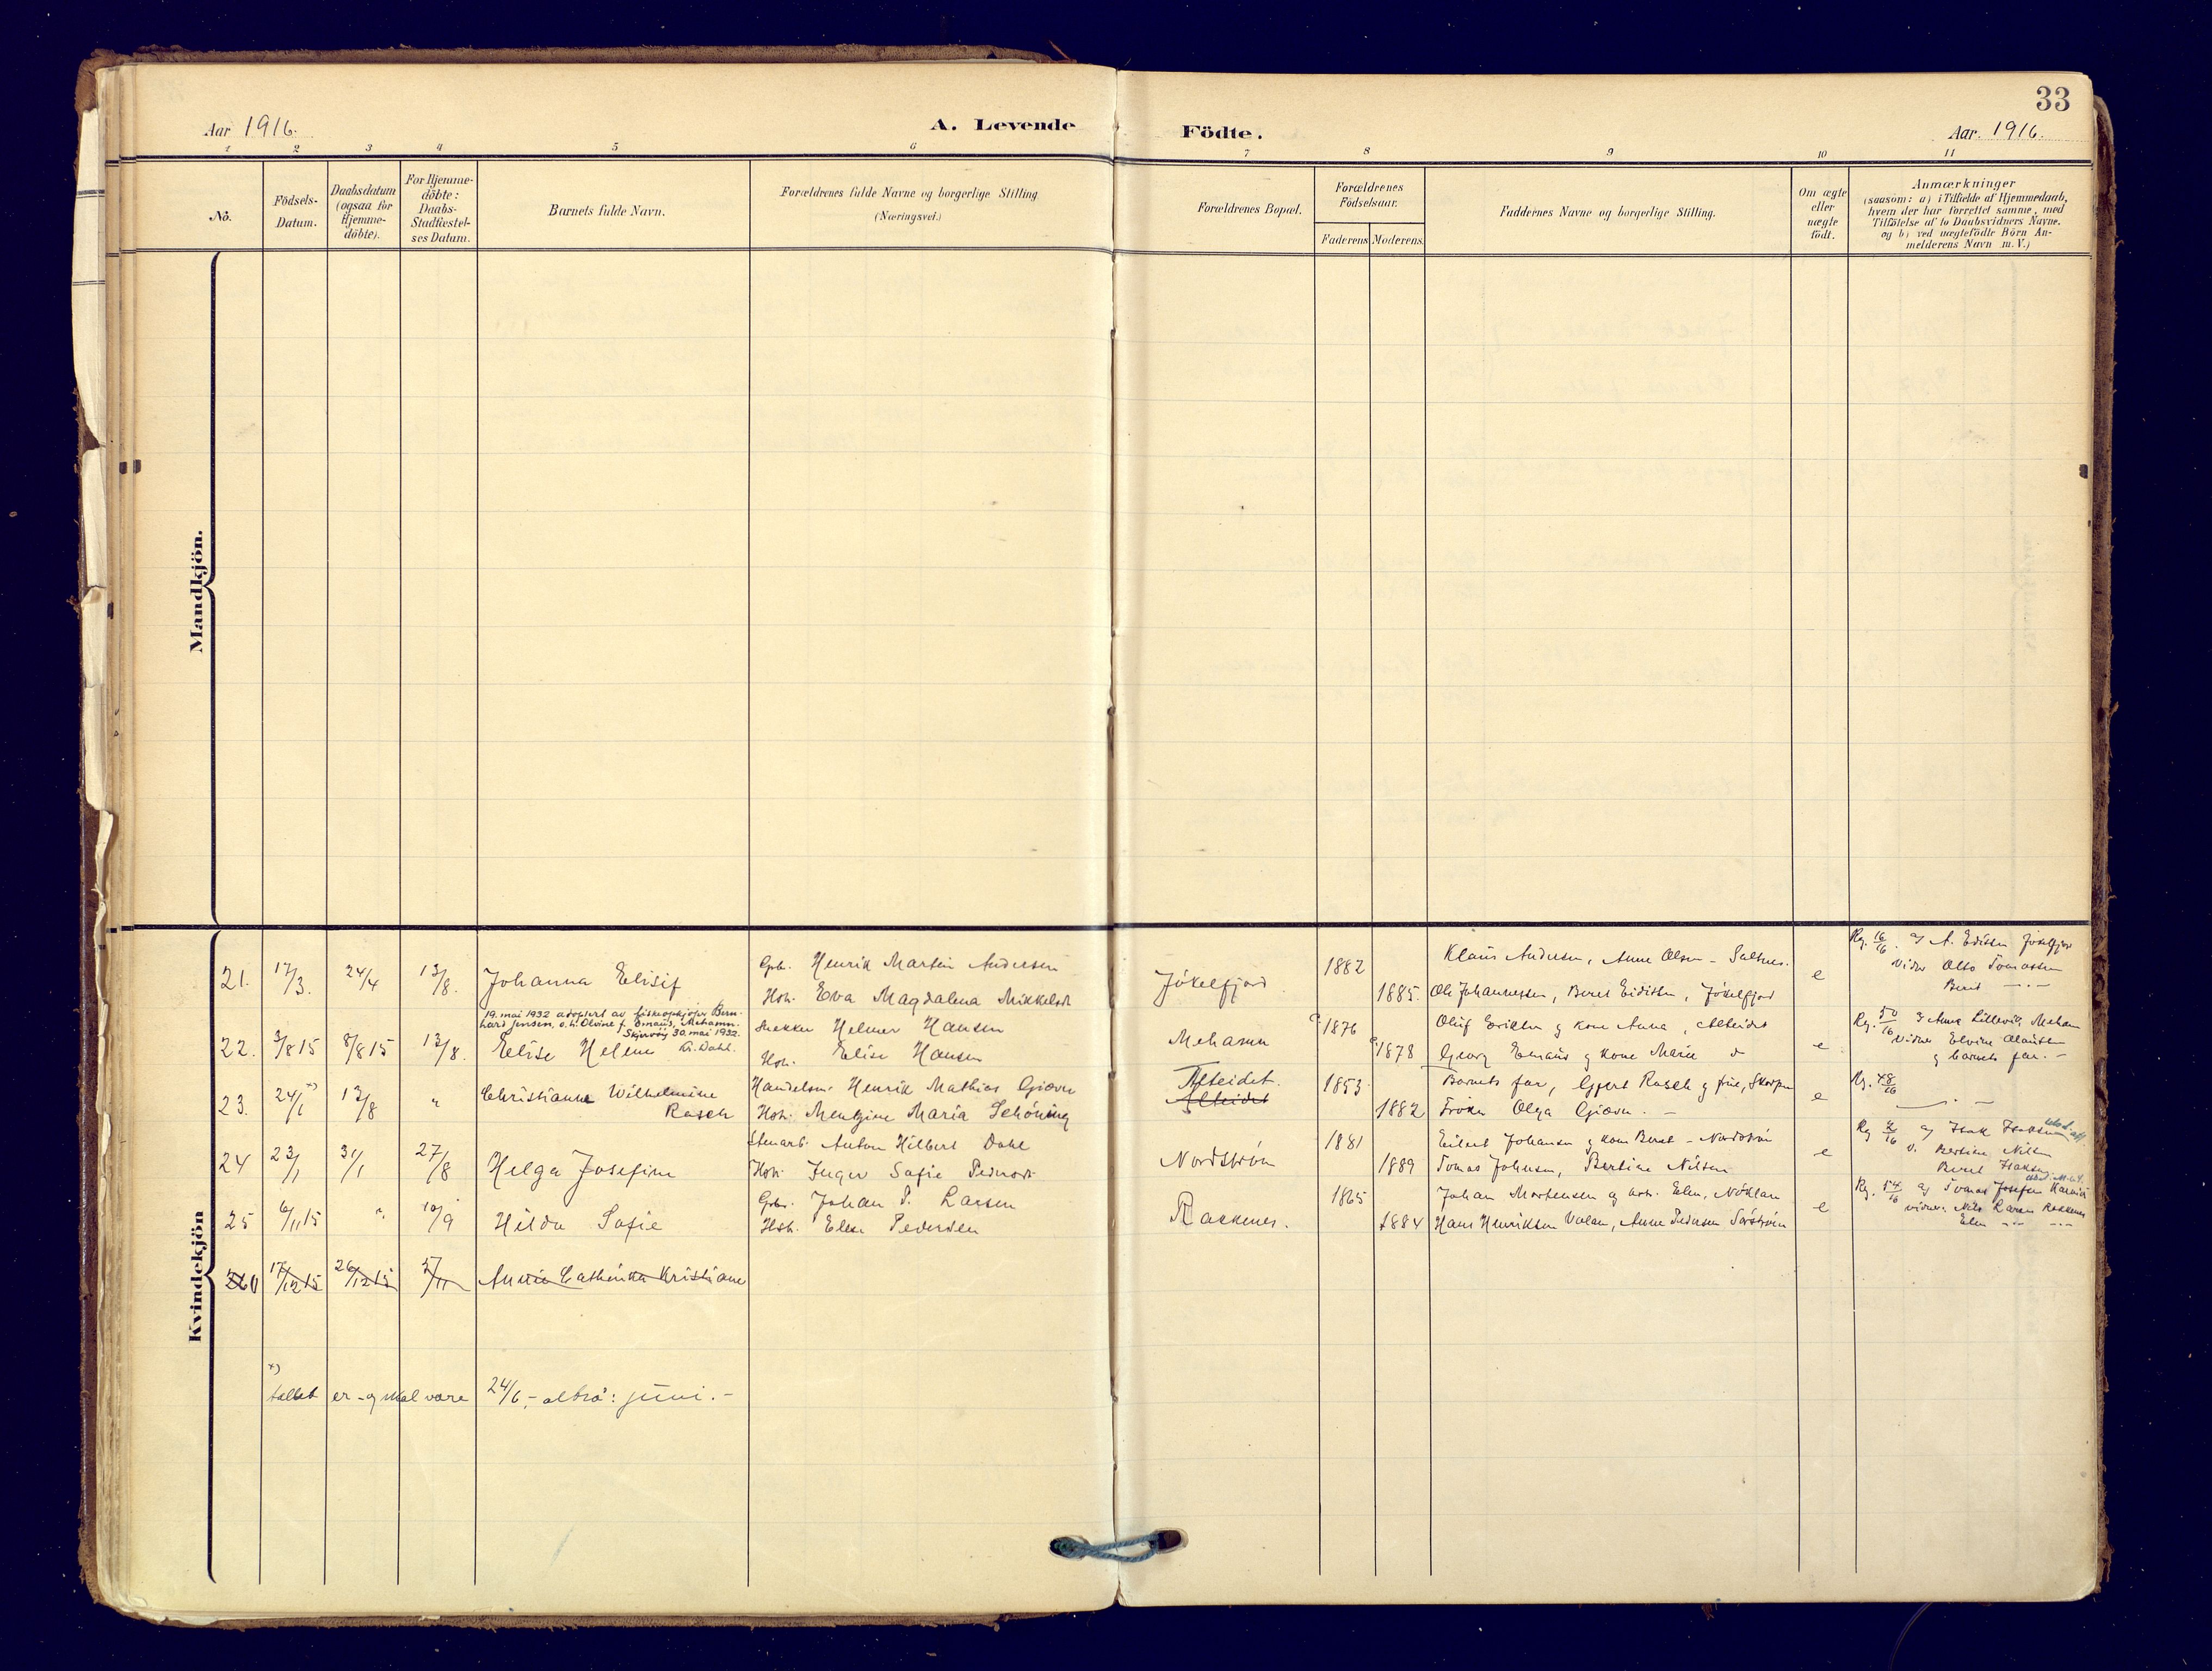 33
Aar 1916.
A. Levende
Födte.
Aar. 1916.
1 2 3 4 5 6 7 8 9 10 11
No.
Födsels-
Datum.
Daabsdatum
(ogsaa for
Hjemme-
döbte).
For Hjemme-
döbte:
Daabs-
Stadfæstel-
ses Datum.
Barnets fulde Navn.
Forældrenes fulde Navne og borgerlige Stilling
(Næringsvei.)
Forældrenes Bopæl.
Forældrenes
Födselsaar.
Faderens Moderens.
Faddernes Navne og borgerlige Stilling.
Om ægte
eller
uægte
födt.
Anmærkninger
(saasom: a) i Tilfælde af Hjemmedaab,
hvem der har forrettet samme, med
Tilföielse af to Daabsvidners Navne.
og b) ved uægtefödte Börn An-
melderens Navn m. V.)
Mandkjön.
Kvindekjön
21. 17/3. 24/4 13/8. Johanna Elisif
Gbr. Henrik Martin Andersen
Hstr. Eva Magdalena Mikkelsdt
Jökelfjord
1882
1885.
Klaus Andersen, Anne Olsen - Saltnes.
Ole Johannessen, Beret Eidissen, Jökelfjord
e
Rg. 16/16. af A. Edissen Jökelfjor
Vidner Otto Tomassen
Beret — . —
19. mai 1932 adoptert av fiskeopkjøper Bern-
hard Jensen, o. h. Olvine f. Emaus, Mehamn.
Skjervøy 30. mai 1932.
Kr. Dahl.
22. 3/8 15 8/8 15 13/8. Elise Helene
Snekker Helmer Hansen
Hstr. Elise Hansen
Mehamn
1876
1878
Oluf Eriksen og kone Anna, Alteidet
Georg Emaus og kone Marie do
e
Rg. 50/16 af Anna Lillevik Meham
Vidner Elvine Olaussen
og barnets far. -
23. 24/6 x) 13/8 " Christianne Wilhelmine
Rasch
Handelsm. Henrik Mathias Giæver
Hstr. Mentzine Maria Schöning
Alteidet.
Alteidet
1853
1882
Barnets far, Gjert Rasch og frue, Skorpen
Fröken Olga Giæver. -
e
Rg. 48/16
— . —
24 23/1 31/1 27/8 Helga Josefine
Stenarb. Anton Hilbert Dahl
Hstr. Inger Sofie Pedersdt
Nordström
1881
1889
Eilert Johansen og kone Beret - Nordström
Tomas Johnsen, Bertine Nilsen
e
Rg 2/16 af Isak Isaksen
v. Bertine Nilsen
Beret Isaksen
25 6/11 15 " 10/9 Hilda Sofie
Gbr. Johan P. Larsen
Hstr. Elen Pedersen
Rackenes.
1865
1884
Johan Mortensen og Elen, Nöklan
Hans Henriksen Valan, Anne Pedersen Sörström
e
Rg. 54/16 af Tomas Josefsen
vidner: Nils Larsen Rakkenes
Elen — " — — " —
26 17/12 15 26/12 15 5/11 Annie Cathinka Kristiane
x)
tallet er - og skal være 24/6, - altså: juni. -